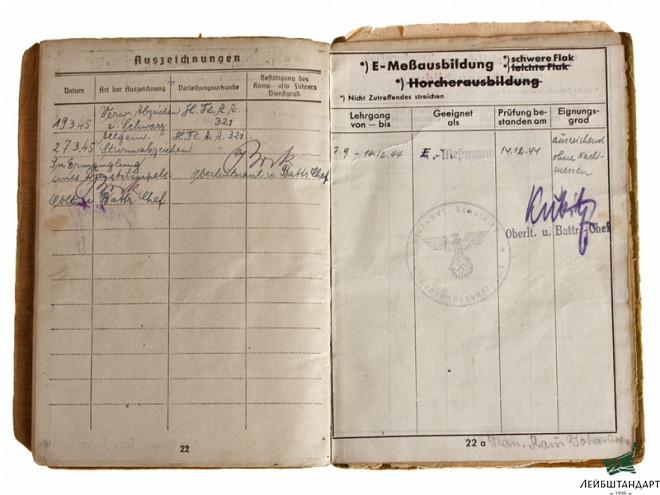 Auszeichnungen
Datum
Art der Auszeichnung
Verleihungsurkunde
Bestätigung des Komp.- usw. Führers Dienstgrad
Verw. Abzeichen H. Fl. A. A.
19.3.45 i. Schwarz 321
Allgem. H. Fl. A. A. 321
27.3.45 Sturmabzeichen
In Ermanglung
eines
Oberleutnant u. Battr. Chef
Oblt. u. Battr. Chef
22
*) E-Meßausbildung *) schwere Flak
*) leichte Flak
*) Horcherausbildung
*) Nicht Zutreffendes streichen
Lehrgang von — bis
Geeignet als
Prüfung bestanden am
Eignungsgrad
7.9 - 14.12.44 E.-Meßmann 14.12.44 ausreichend
ohne
messen
Oberlt. u. Battr.-Chef
22 a
ЛЕЙБШТАНДАРТ